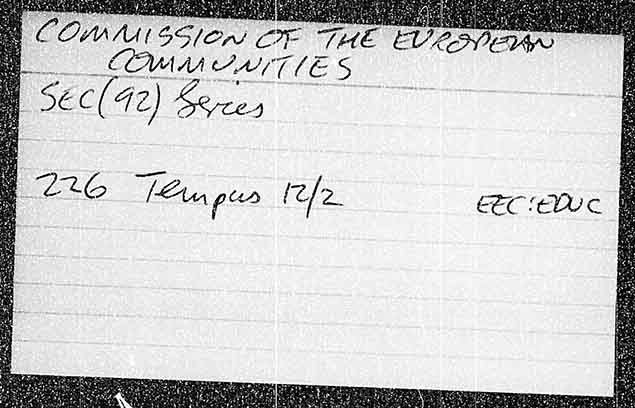 COMMISSION OF THE EUROPEAN
COMMUNITIES
SEC(92) Series
226 Tempus 12/2 EEC:EDUC